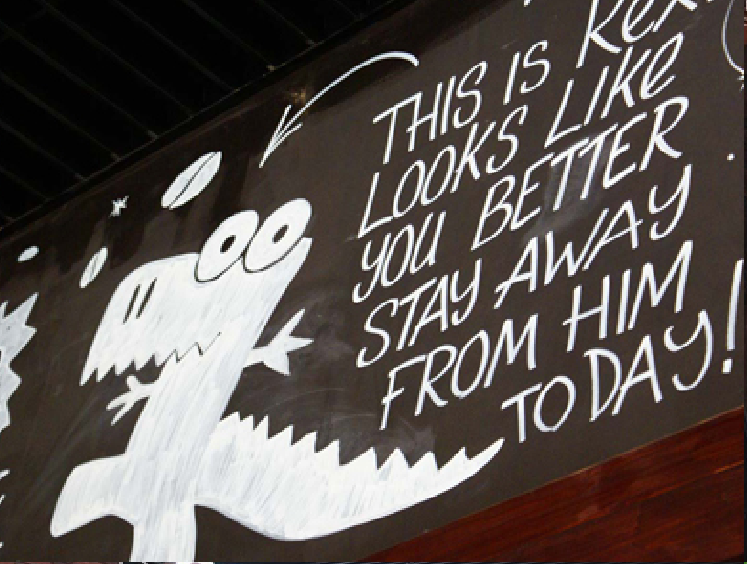 THIS IS Rex.
LOOKS LIKE
YOU BETTER
STAY AWAY
FROM HIM
TODAY!